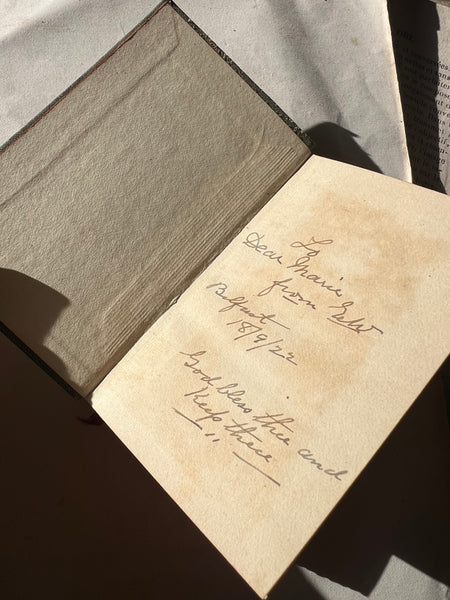 To
Dear Marie
from
Belfast
18/9/22
God bless thee and
Keep thee